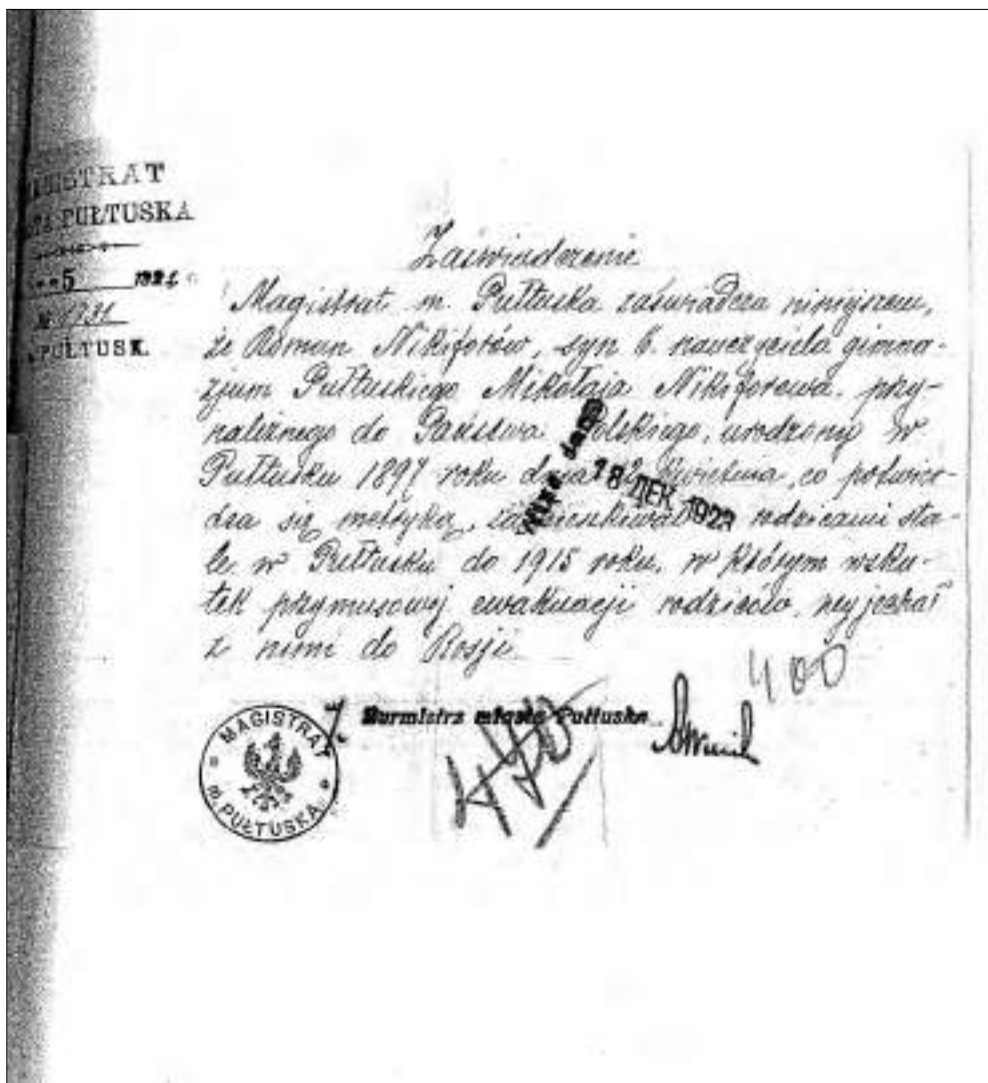 MAGISTRAT
MIASTA PUŁTUSKA
5 192
w PUŁTUSK.
Zaświadczenie
Magistrat m. Pułtuska zaświadcza niniejszem,
że Roman Nikiforów, syn b. nauczyciela gimna-
zjum Pułtuskiego Mikołaja Nikiforowa, przy-
należnego do Państwa Polskiego, urodzony w
Pułtusku 1897 roku dnia Kwietnia, co potwier-
dza się metryką, zamieszkiwał z rodzicami sta-
le w Pułtusku do 1915 roku, w którym wsku-
tek przymusowej ewakuacji rodziców, wyjechał
z nimi do Rosji.
ДЕК 192
400
Burmistrz miasta Pułtuska
MAGISTRAT
m. PUŁTUSKA